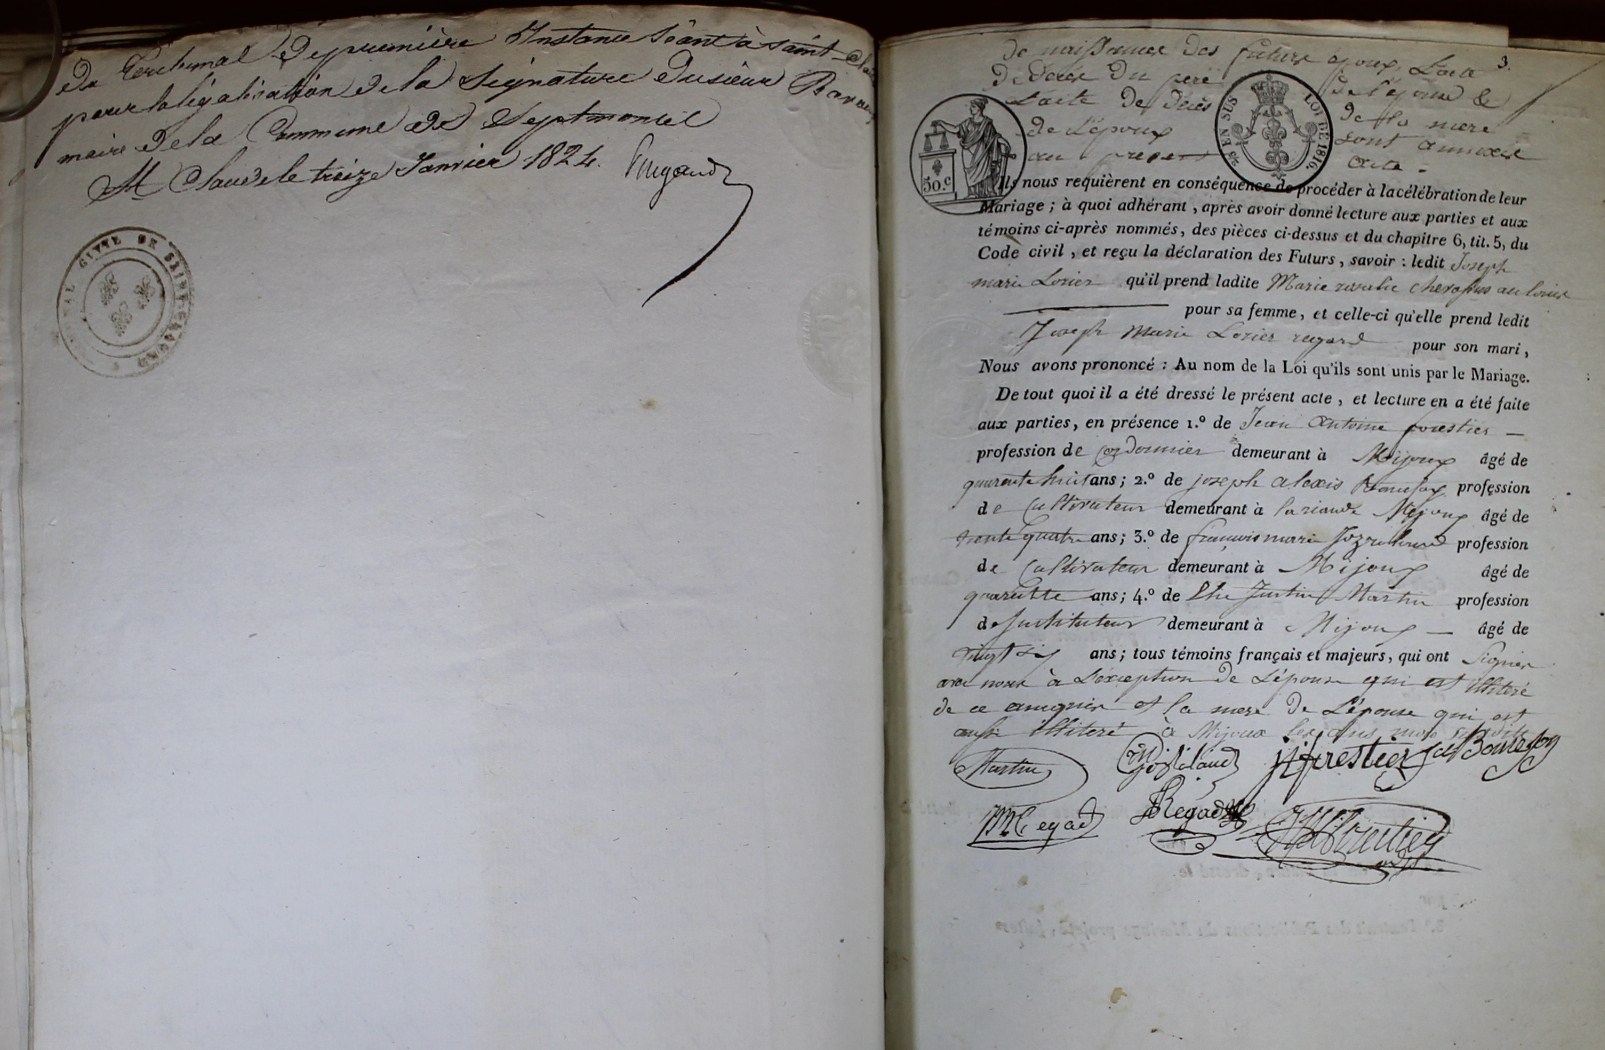 du tribunal de première Instance séant à saint
pour la légalisation de la signature du sieur
maire de la Commune de Septmoncel
St Claude le treize Janvier 1824.
3.
de naissance des futurs époux, L'acte
de décès du père de l'épouse &
L'acte de décès de la mere
de l'époux sont annexés
au present acte.
50.c
EN SUS LOI DE 1816.
Ils nous requièrent en conséquence de procéder à la célébration de leur
Mariage ; à quoi adhérant, après avoir donné lecture aux parties et aux
témoins ci-après nommés, des pièces ci-dessus et du chapitre 6, tit. 5, du
Code civil, et reçu la déclaration des Futurs, savoir : ledit Joseph
marie qu'il prend ladite Marie
pour sa femme, et celle-ci qu'elle prend ledit
Joseph Marie pour son mari,
Nous avons prononcé : Au nom de la Loi qu'ils sont unis par le Mariage.
De tout quoi il a été dressé le présent acte, et lecture en a été faite
aux parties, en présence 1.º de Jean Antoine forestier —
profession de Cordonnier demeurant à Mijoux âgé de
quarante huit ans ; 2.º de joseph alexis profession
de Cultivateur demeurant à Mijoux âgé de
trente quatre ans ; 3.º de françois marie profession
de Cultivateur demeurant à Mijoux âgé de
quarante ans ; 4.º de Justin Martin profession
d'Instituteur demeurant à Mijoux — âgé de
vingt six ans ; tous témoins français et majeurs, qui ont signés
avec nous à L'exception de L'épouse qui est illiteré
de ce enquise et la mere de L'épouse qui est
aussi illiteré à Mijoux les ans mois susdits
Martin